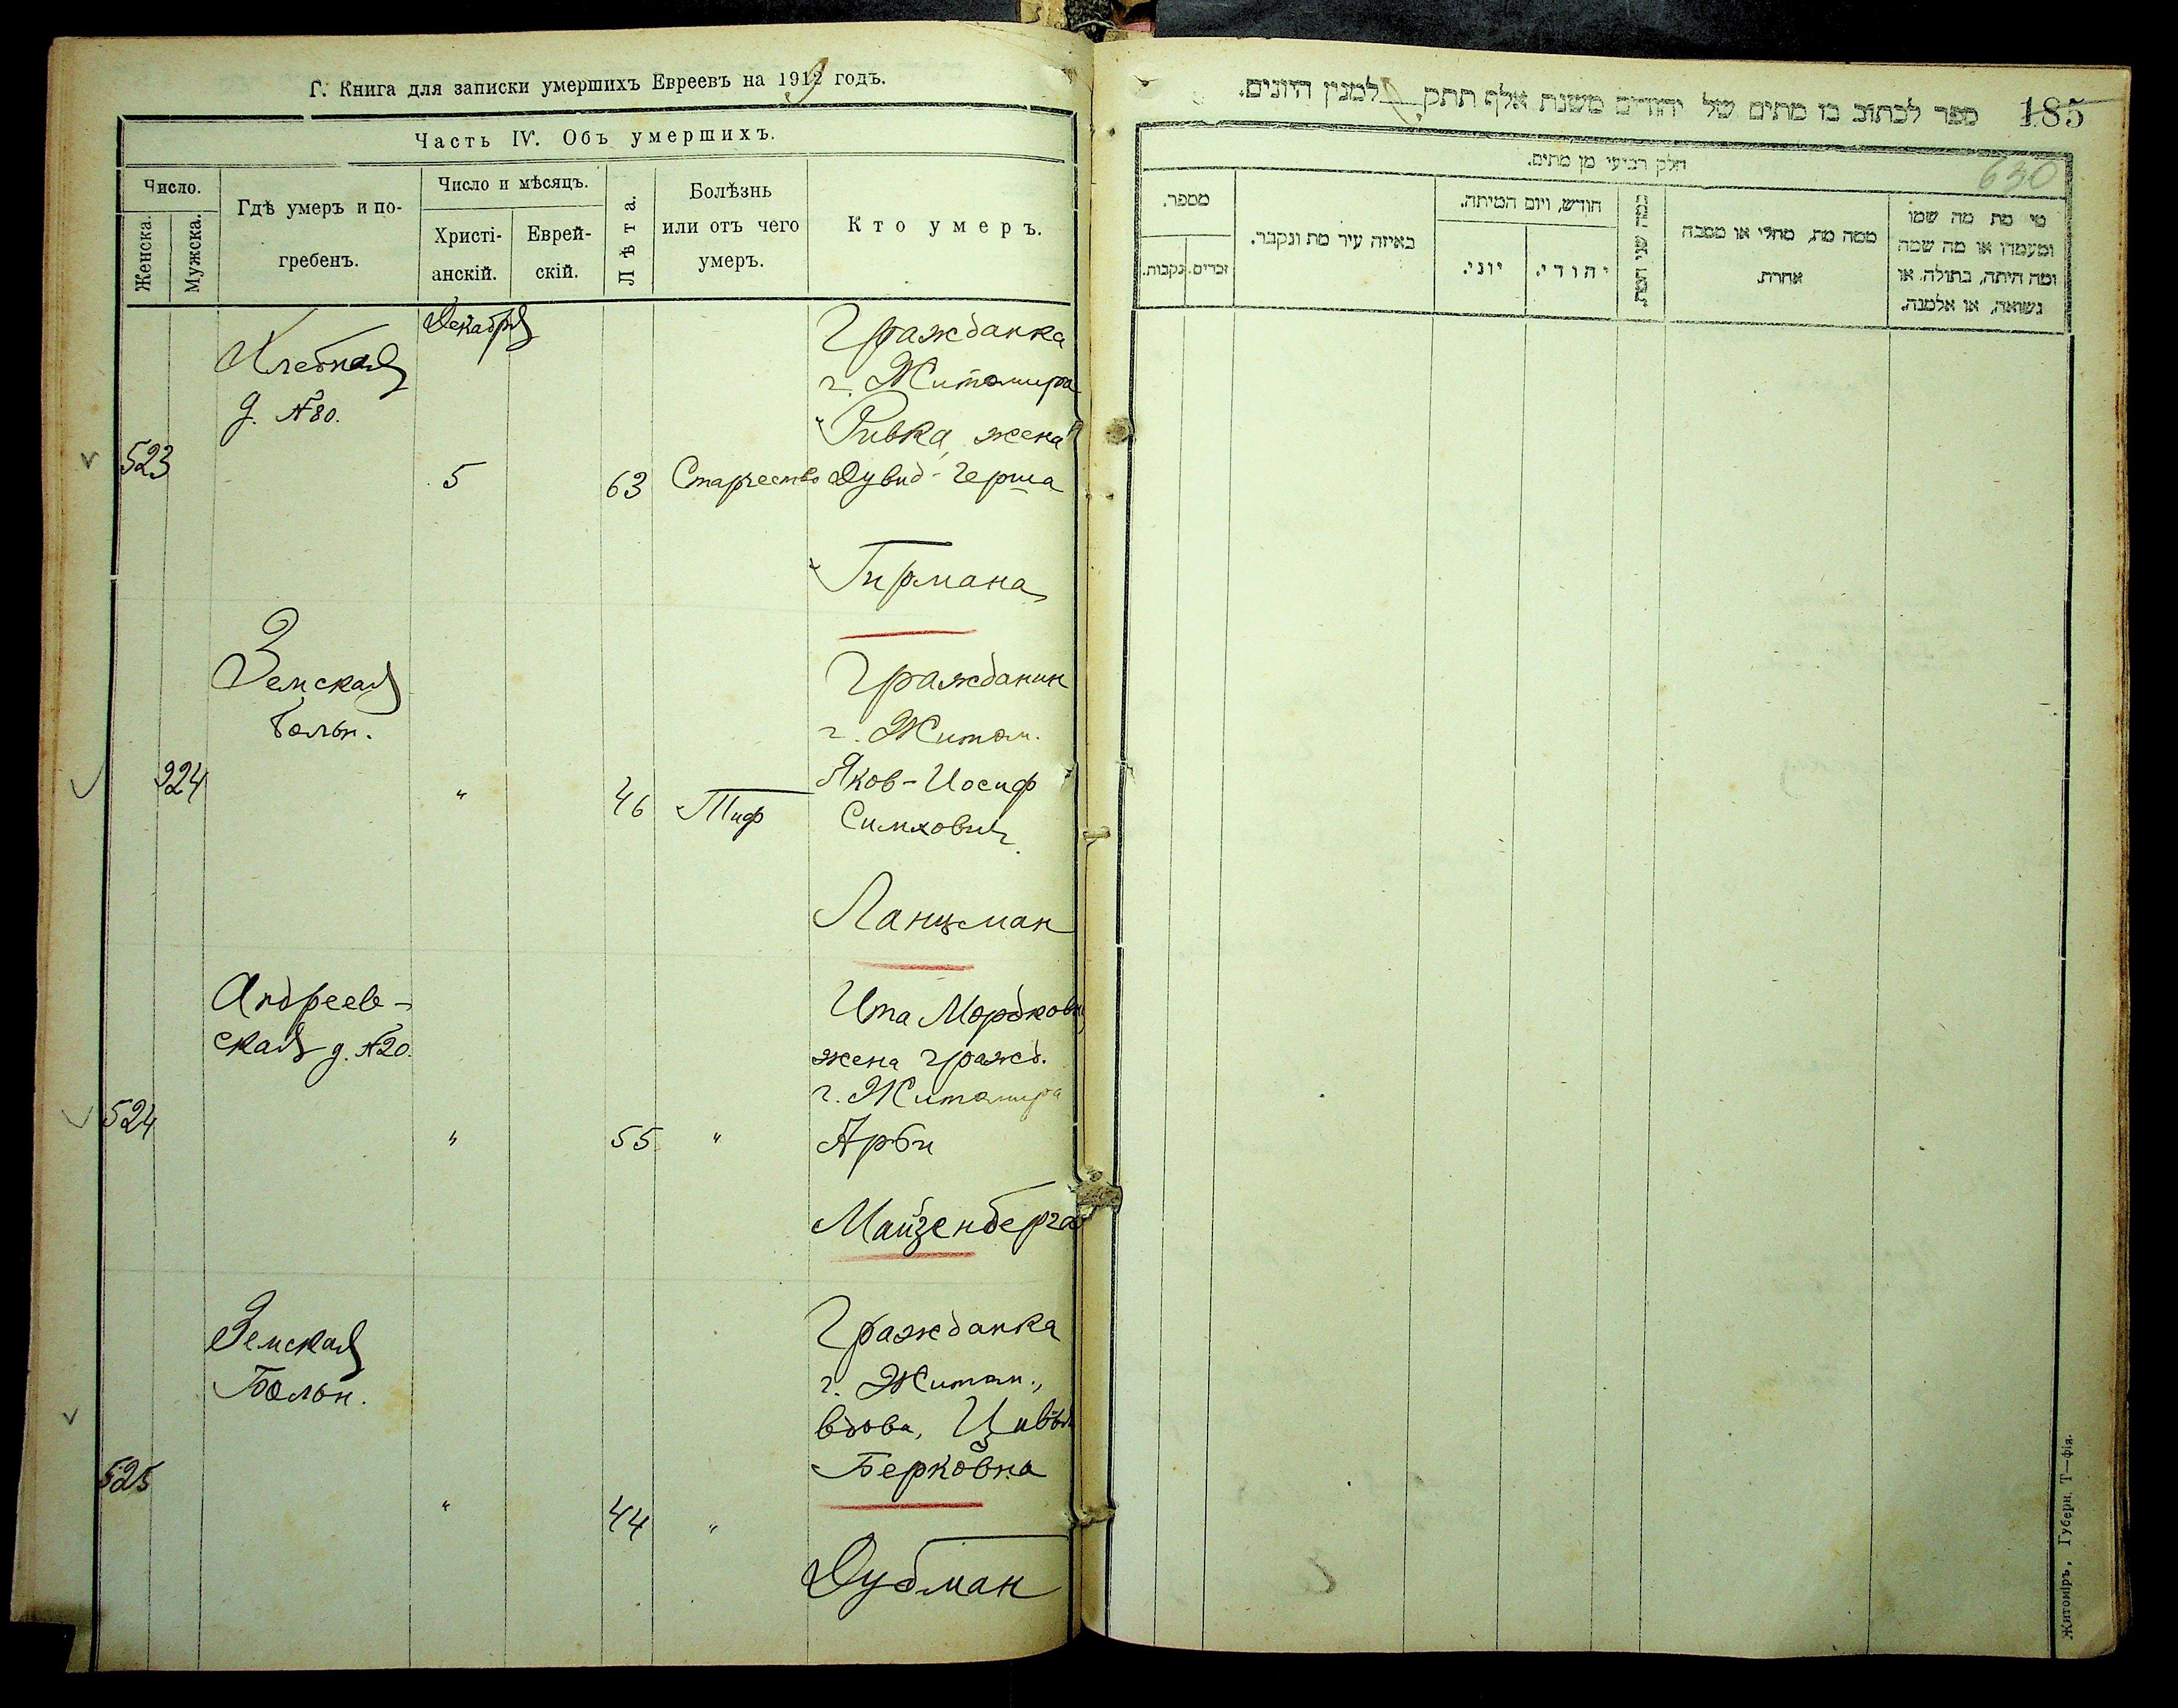 Г. Книга для записки умершихъ Евреевъ на 1919 годъ.
Часть IV. Объ умершихъ.
Число.
Женска.
Мужска.
Гдѣ умеръ и по-
гребенъ.
Число и мѣсяцъ.
Христі-
анскій.
Еврей-
скій.
Лѣта.
Болѣзнь
или отъ чего
умеръ.
Кто умеръ.
523
Хлебная
д. №80.
Декабря
5
63
Старчество
Гражданка
г. Житомира
Ривка, жена
Дувид-Герша
Гирмана
324
Земская
больн.
"
46
Тиф
Гражданин
г. Житом.
Яков-Иосиф
Симхович
Ланцман
524
Андреев-
ская д. №20.
"
55
"
Ита Мордковн
жена гражд.
г. Житомира
Арби
Майзенберга
525
Земская
Больн.
"
44
"
Гражданка
г. Житом.,
вдова,
Берковна
Дубман
185
ספר לכתוב בו מתים של יהודים משנת אלף תתק למנין היונים.
630
חלק רביעי מן מתים.
מספר.
נקבות.
זכרים.
באיזה עיר מת ונקבר.
חודש, ויום המיתה.
יוני.
יהודי.
כמה שני המת.
ממה מת, מחלי או מסבה
אחרת.
מי מת מה שמו
ומעמדו או מה שמה
ומה היתה, בתולה או
נשואה, או אלמנה.
Житоміръ, Губерн. Т—фія.